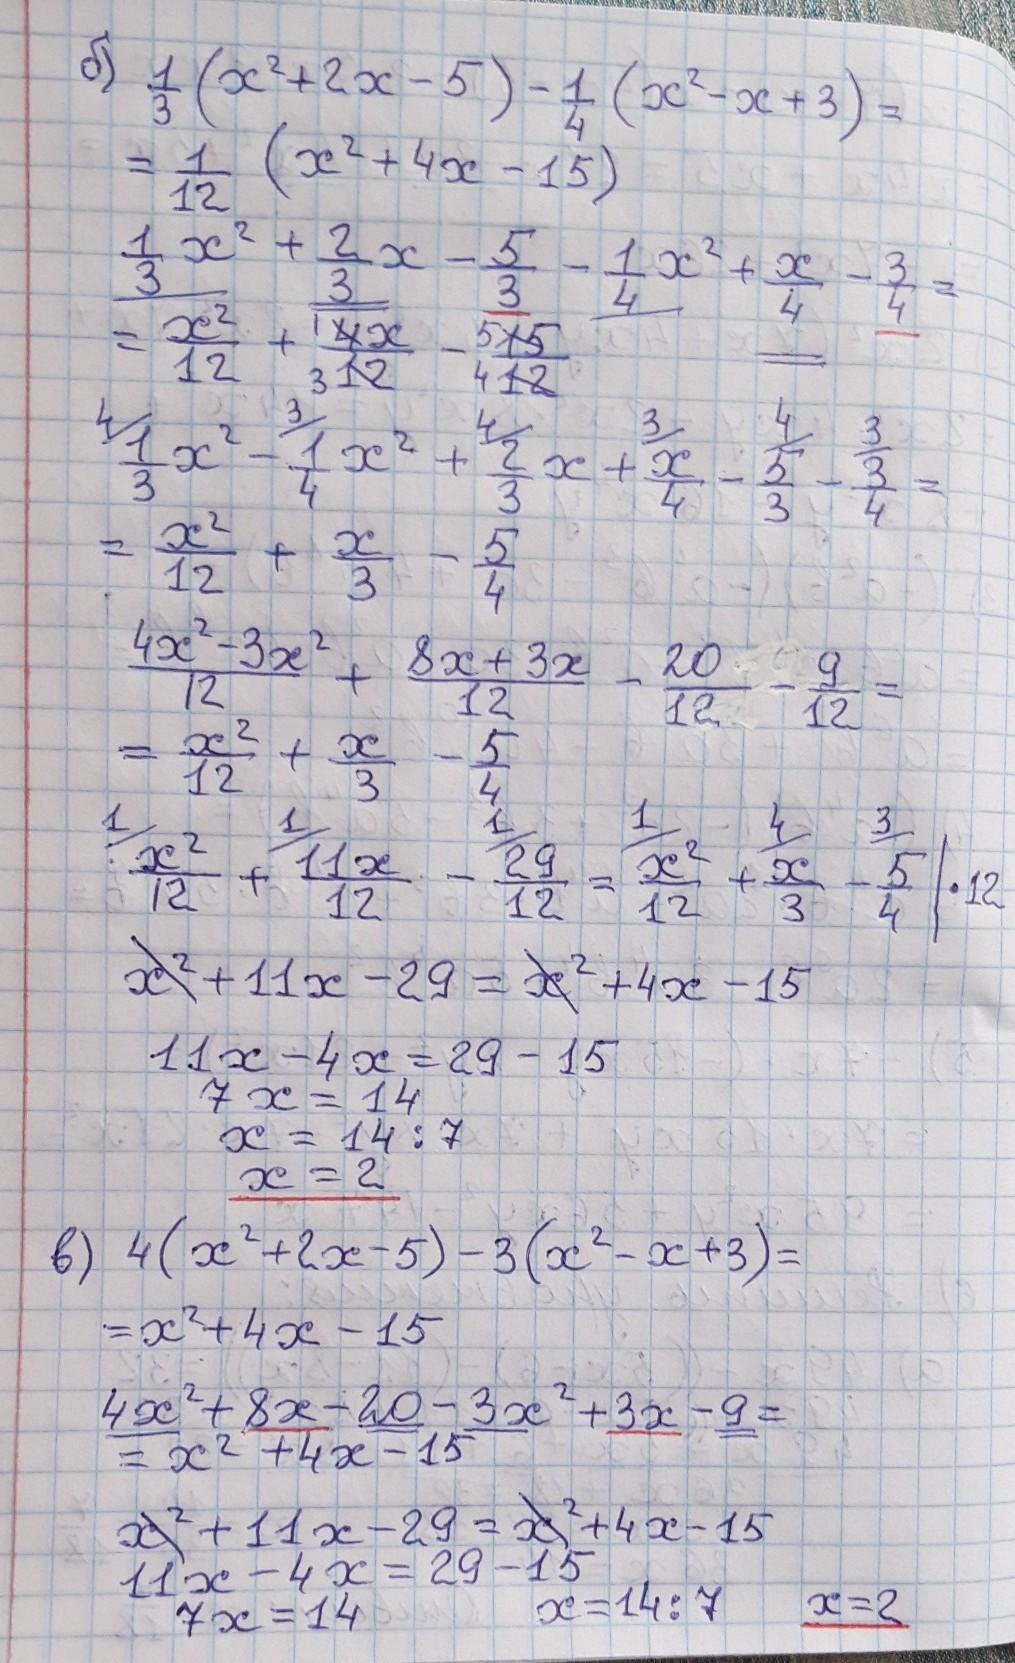 б) 1/3 (x² + 2x - 5) - 1/4 (x² - x + 3) =
= 1/12 (x² + 4x - 15)
1/3 x² + 2/3 x - 5/3 - 1/4 x² + x/4 - 3/4 =
= x²/12 + 1 4x/3 12 - 5 15/4 12
4/ 1/3 x² - 3/ 1/4 x² + 4/ 2/3 x + 3/ x/4 - 4/ 5/3 - 3/ 3/4 =
= x²/12 + x/3 - 5/4
4x² - 3x²/12 + 8x + 3x/12 - 20/12 - 9/12 =
= x²/12 + x/3 - 5/4
1/ x²/12 + 1/ 11x/12 - 1/ 29/12 = 1/ x²/12 + 4/ x/3 - 3/ 5/4 | · 12
x² + 11x - 29 = x² + 4x - 15
11x - 4x = 29 - 15
7x = 14
x = 14 : 7
x = 2
в) 4(x² + 2x - 5) - 3(x² - x + 3) =
= x² + 4x - 15
4x² + 8x - 20 - 3x² + 3x - 9 =
= x² + 4x - 15
x² + 11x - 29 = x² + 4x - 15
11x - 4x = 29 - 15
7x = 14 x = 14 : 7 x = 2